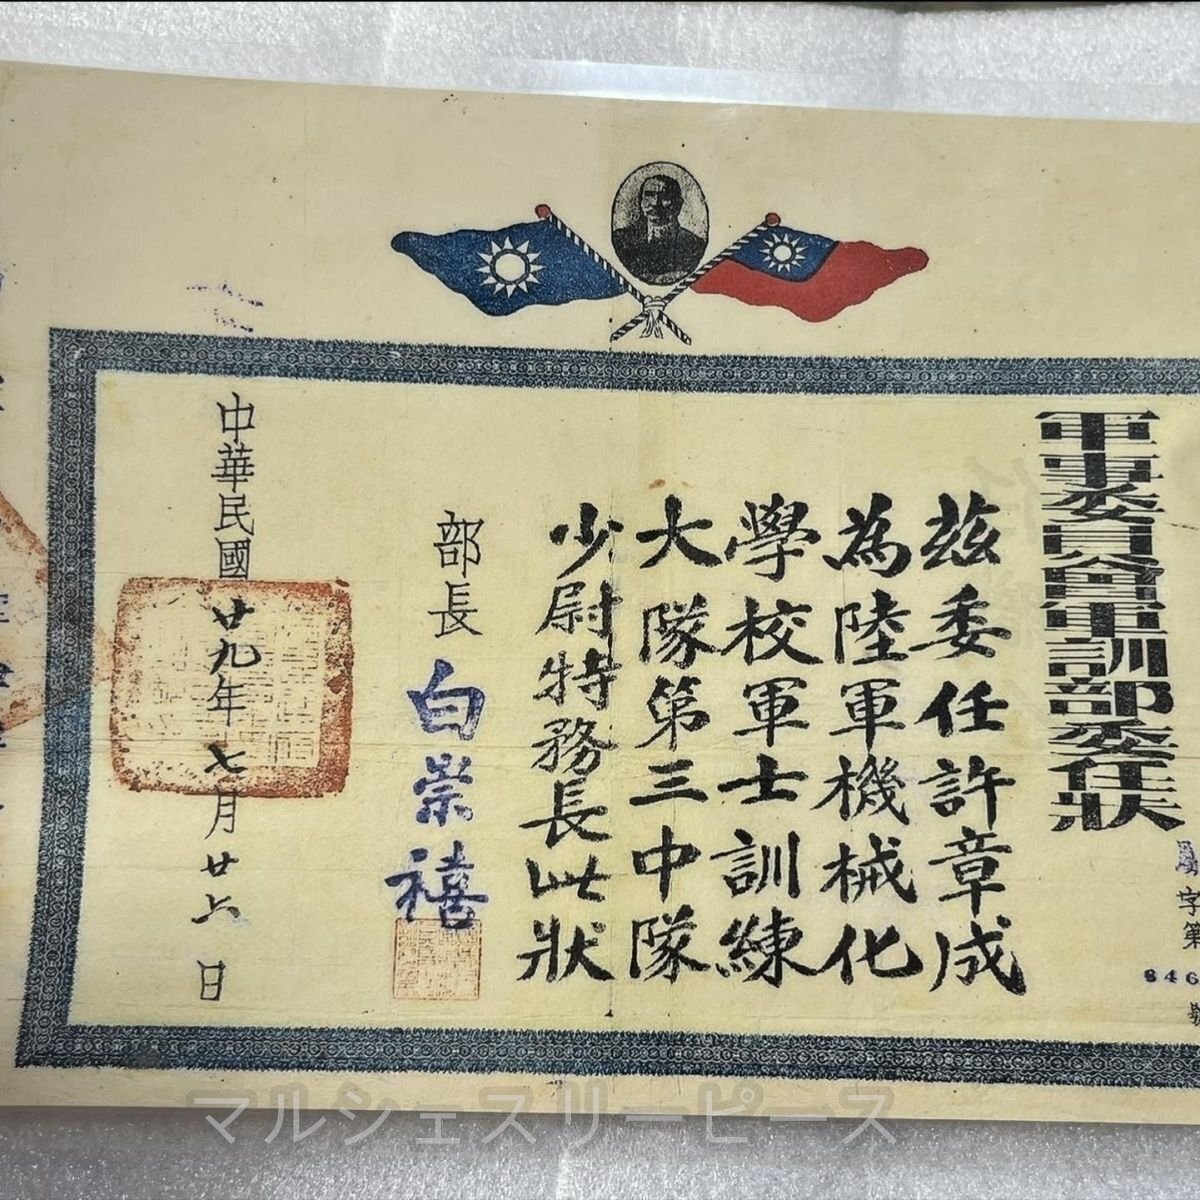 軍事委員會軍訓部委任狀
字第
846
號
茲委任許章成
為陸軍機械化
學校軍士訓練
大隊第三中隊
少尉特務長此狀
部長 白崇禧
中華民國廿九年七月廿六日
マルシェスリーピース